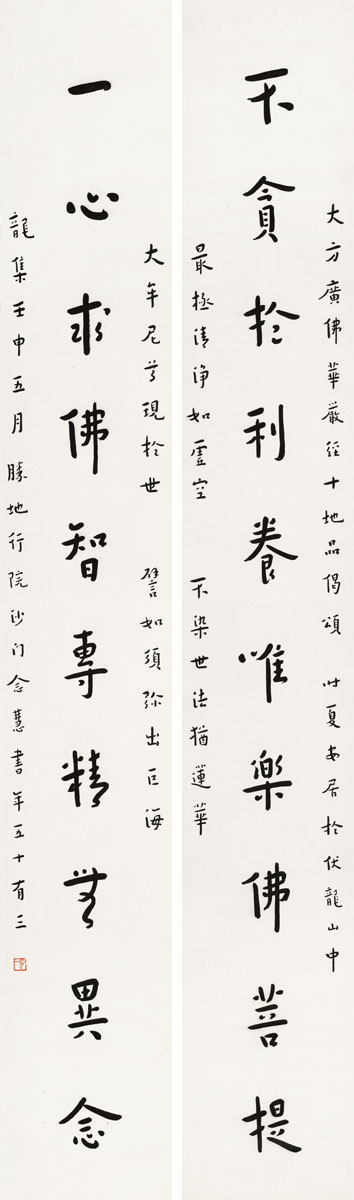 大方廣佛華嚴經十地品偈頌 时夏安居於伏龍山中
不貪於利養唯樂佛菩提
最極清淨如虛空 不染世法猶蓮華
大牟尼尊現於世 譬如須弥出巨海
一心求佛智專精无異念
龍集壬申五月勝地行院沙门念慧書年五十有三